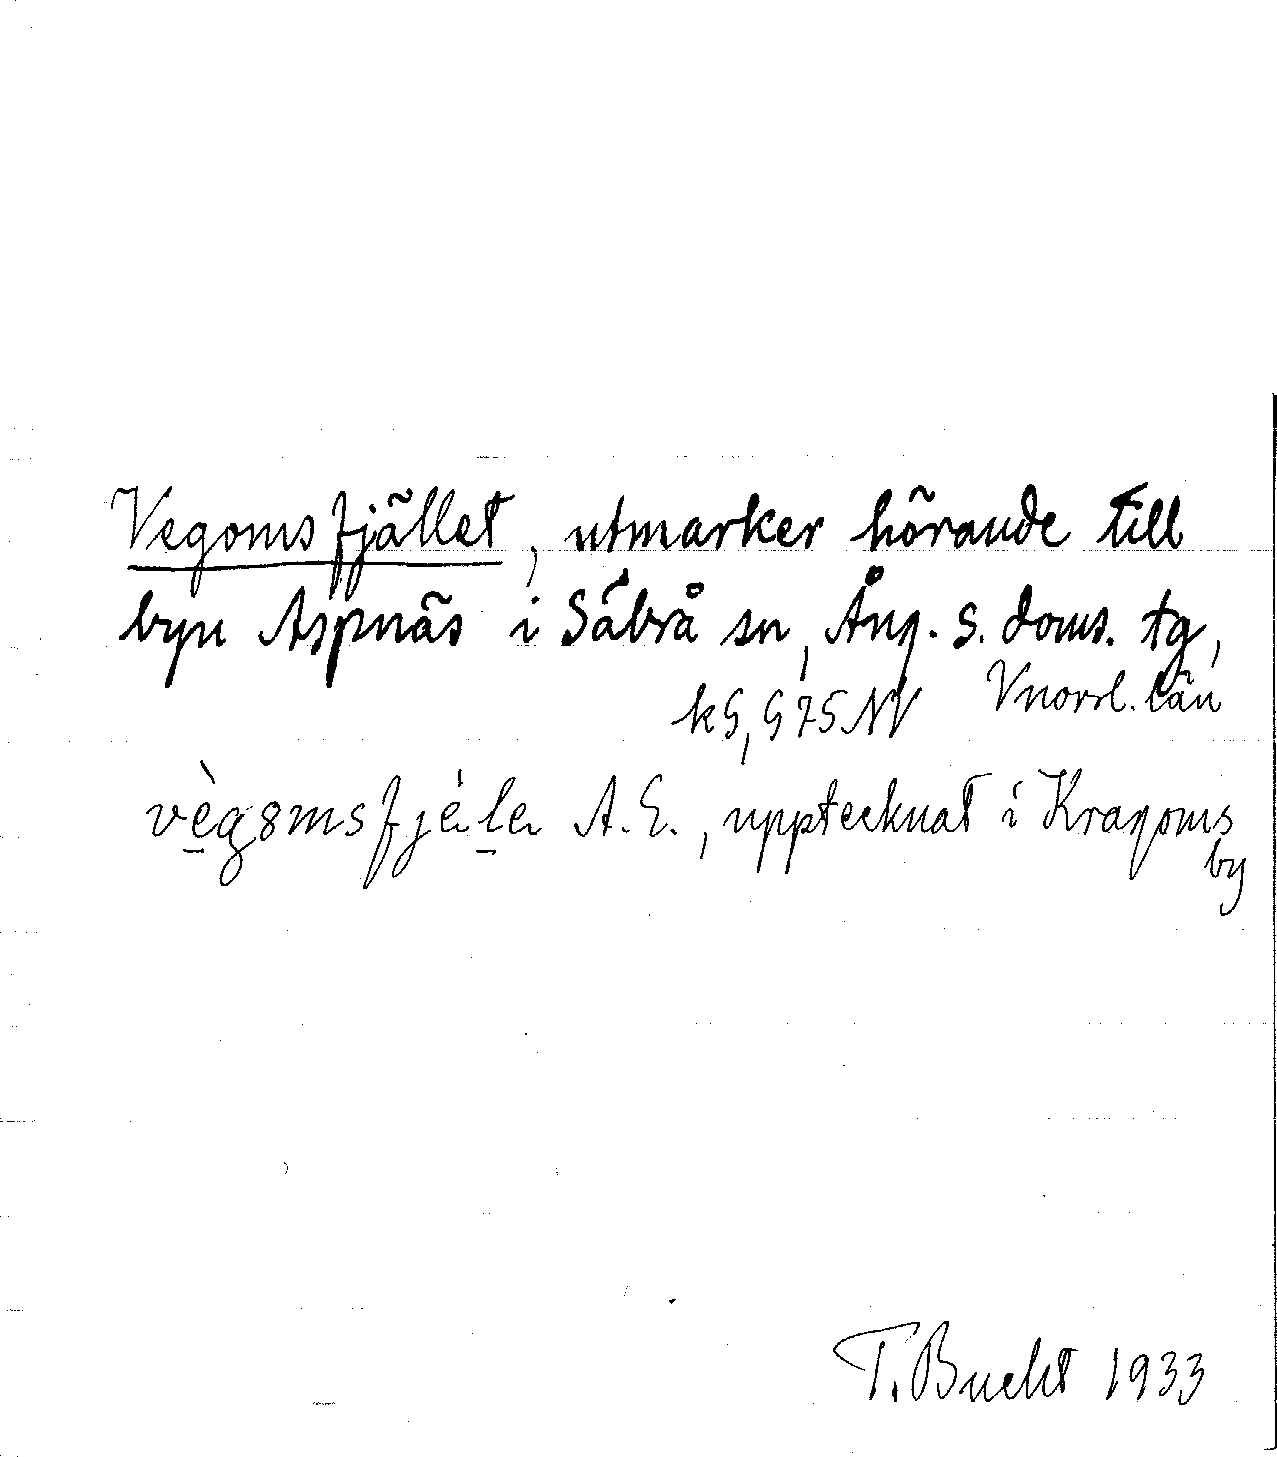 Vegomsfjället, utmarker hörande till
byn Aspnäs i Säbrå sn, Ång. s. doms. tg,
Vnorrl. län
kG, G75NV
A.E., upptecknat i Kragoms
by
T. Bucht 1933